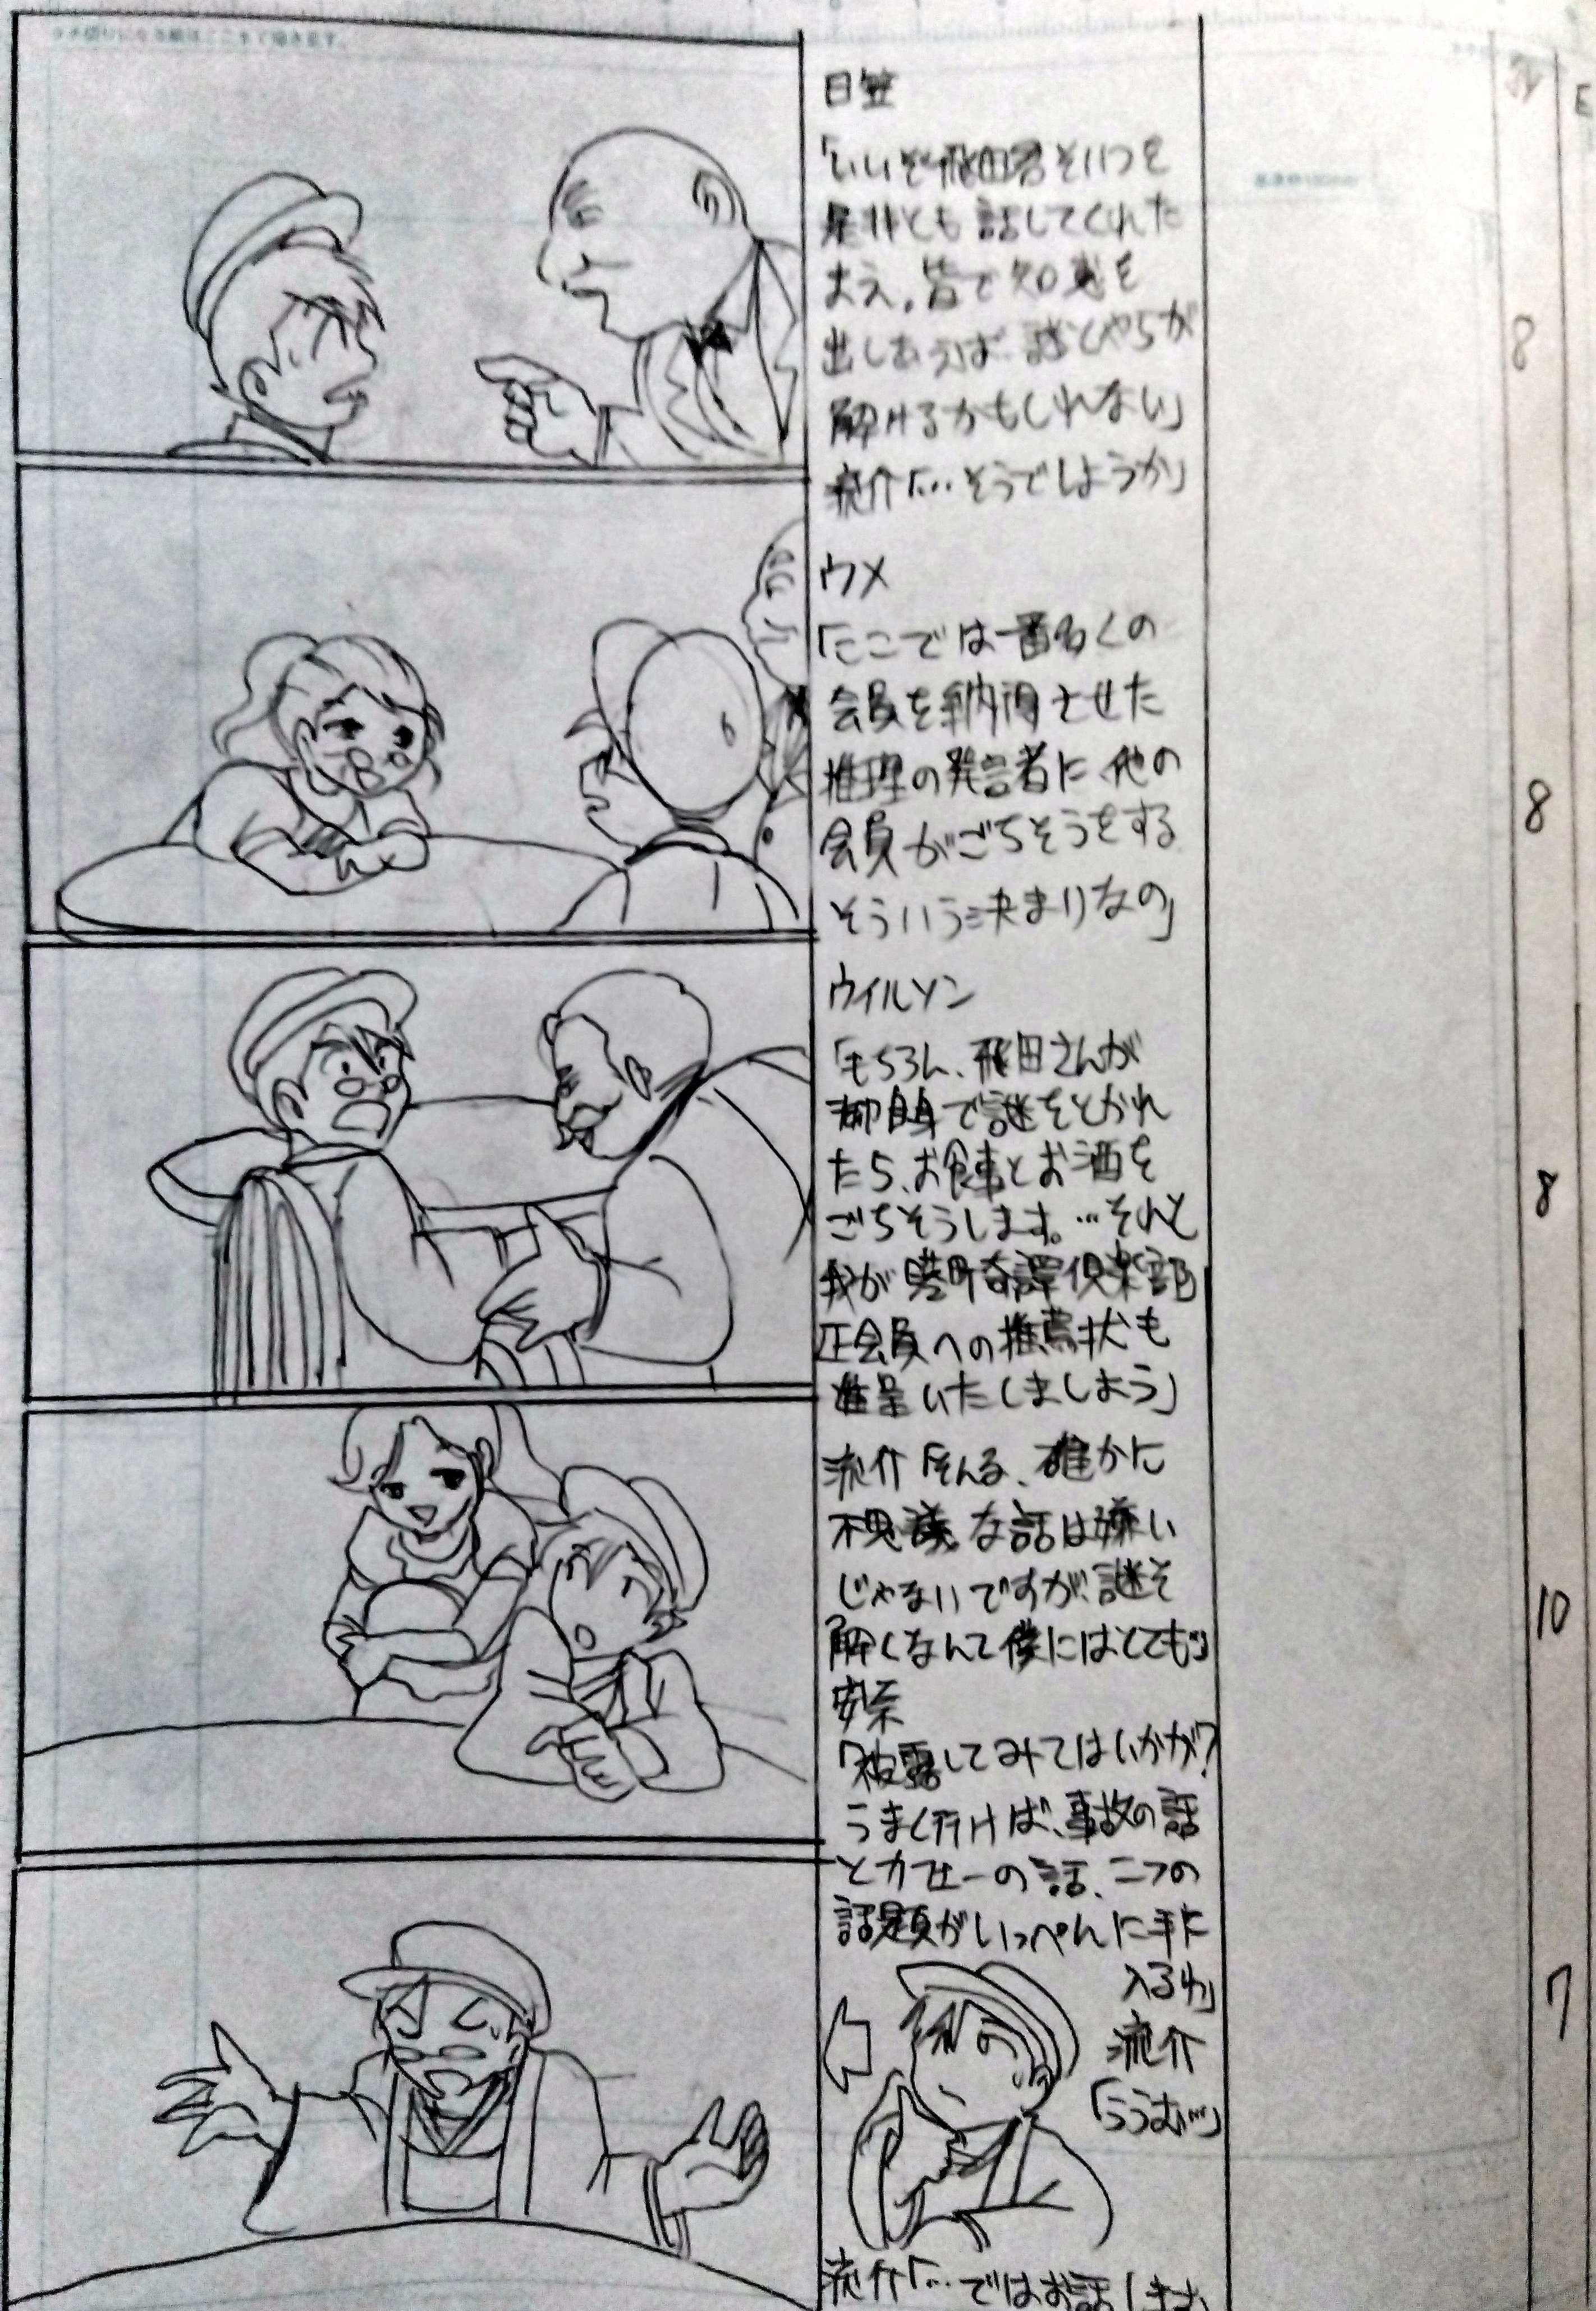 日笠
「いいぞ飛田君そいつを
是非とも話してくれた
まえ。皆で知恵を
出しあえば、謎とやらが
解けるかもしれない」
流介「…そうでしょうか」
8
ウメ
「ここでは一番多くの
会員を納得させた
推理の発言者に他の
会員がごちそうをする
そういう決まりなの」
8
ウイルソン
「もちろん、飛田さんが
御自身で謎をとかれ
たら、お食事とお酒を
ごちそうします。…それと
我が港町奇譚倶楽部
正会員への推薦状も
進呈いたしましょう」
8
流介「そんな、確かに
不思議な話は嫌い
じゃないですが、謎を
解くなんて僕にはとても」
安奈
「披露してみてはいかが?
うまく行けば、事故の話
とカフェーの話、二つの
話題がいっぺんに手に
入るわ」
10
流介
「ううむ…」
7
流介「…ではお話します